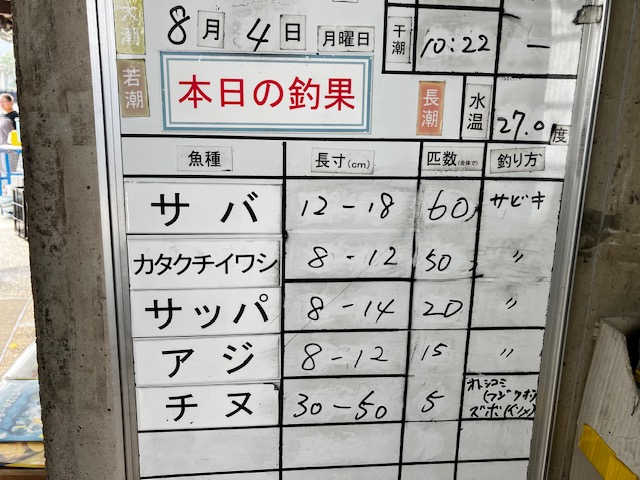 大潮
8月4日 月曜日 干潮 10:22 —
若潮 本日の釣果 長潮 水温 27.0度
魚種 長寸(cm) 匹数(全体で) 釣り方
サバ 12-18 60 サビキ
カタクチイワシ 8-12 50 〃
サッパ 8-14 20 〃
アジ 8-12 15 〃
チヌ 30-50 5 オトシコミ
ズボ(イソメ)